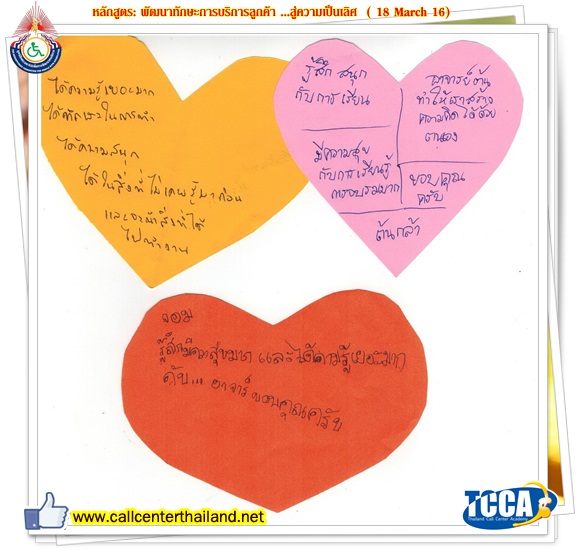 หลักสูตร: พัฒนาทักษะการบริการลูกค้า ...สู่ความเป็นเลิศ ( 18 March 16)
ได้ความรู้เยอะมาก
ได้
ในการทำ
ได้ความสนุก
ได้ในสิ่งที่ไม่เคยรู้มาก่อน
และ
สิ่งที่ได้
ไปทำงาน
รู้สึก สนุก
กับการเรียน
อาจารย์ต้น
ทำให้เราสร้าง
ความคิดได้ด้วย
ตนเอง
มีความสุข
กับการเรียนรู้
การอบรมมาก
ขอบคุณ
ครับ
ต้นกล้า
จอม
รู้สึกมีความสุขมาก และได้ความรู้เยอะมาก
คับ... อาจารย์ ขอบคุณครับ
www.callcenterthailand.net
TCCA
Thailand Call Center Academy